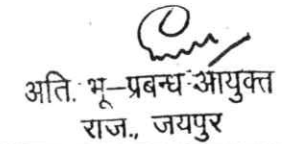 अति. भू-प्रबन्ध आयुक्त
राज., जयपुर